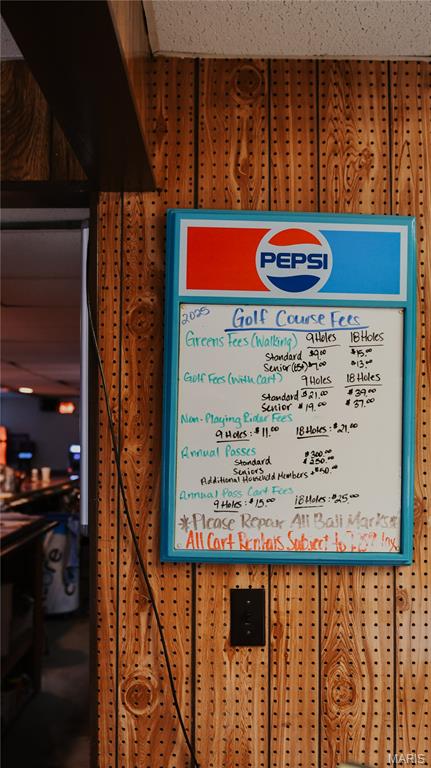 PEPSI
2025
Golf Course Fees
Greens Fees (Walking) 9 Holes 18 Holes
Standard $9.00 $15.00
Senior (65+) $7.00 $13.00
Golf Fees (with Cart) 9 Holes 18 Holes
Standard $21.00 $39.00
Senior $19.00 $37.00
Non-Playing Rider Fees
9 Holes: $11.00 18 Holes: $21.00
Annual Passes
Standard $300.00
Seniors $250.00
Additional Household Members + $50.00
Annual Pass Cart Fees
9 Holes: $15.00 18 Holes: $25.00
*Please Repair All Ball Marks*
All Cart Rentals Subject to 7.25% Tax
MARIS